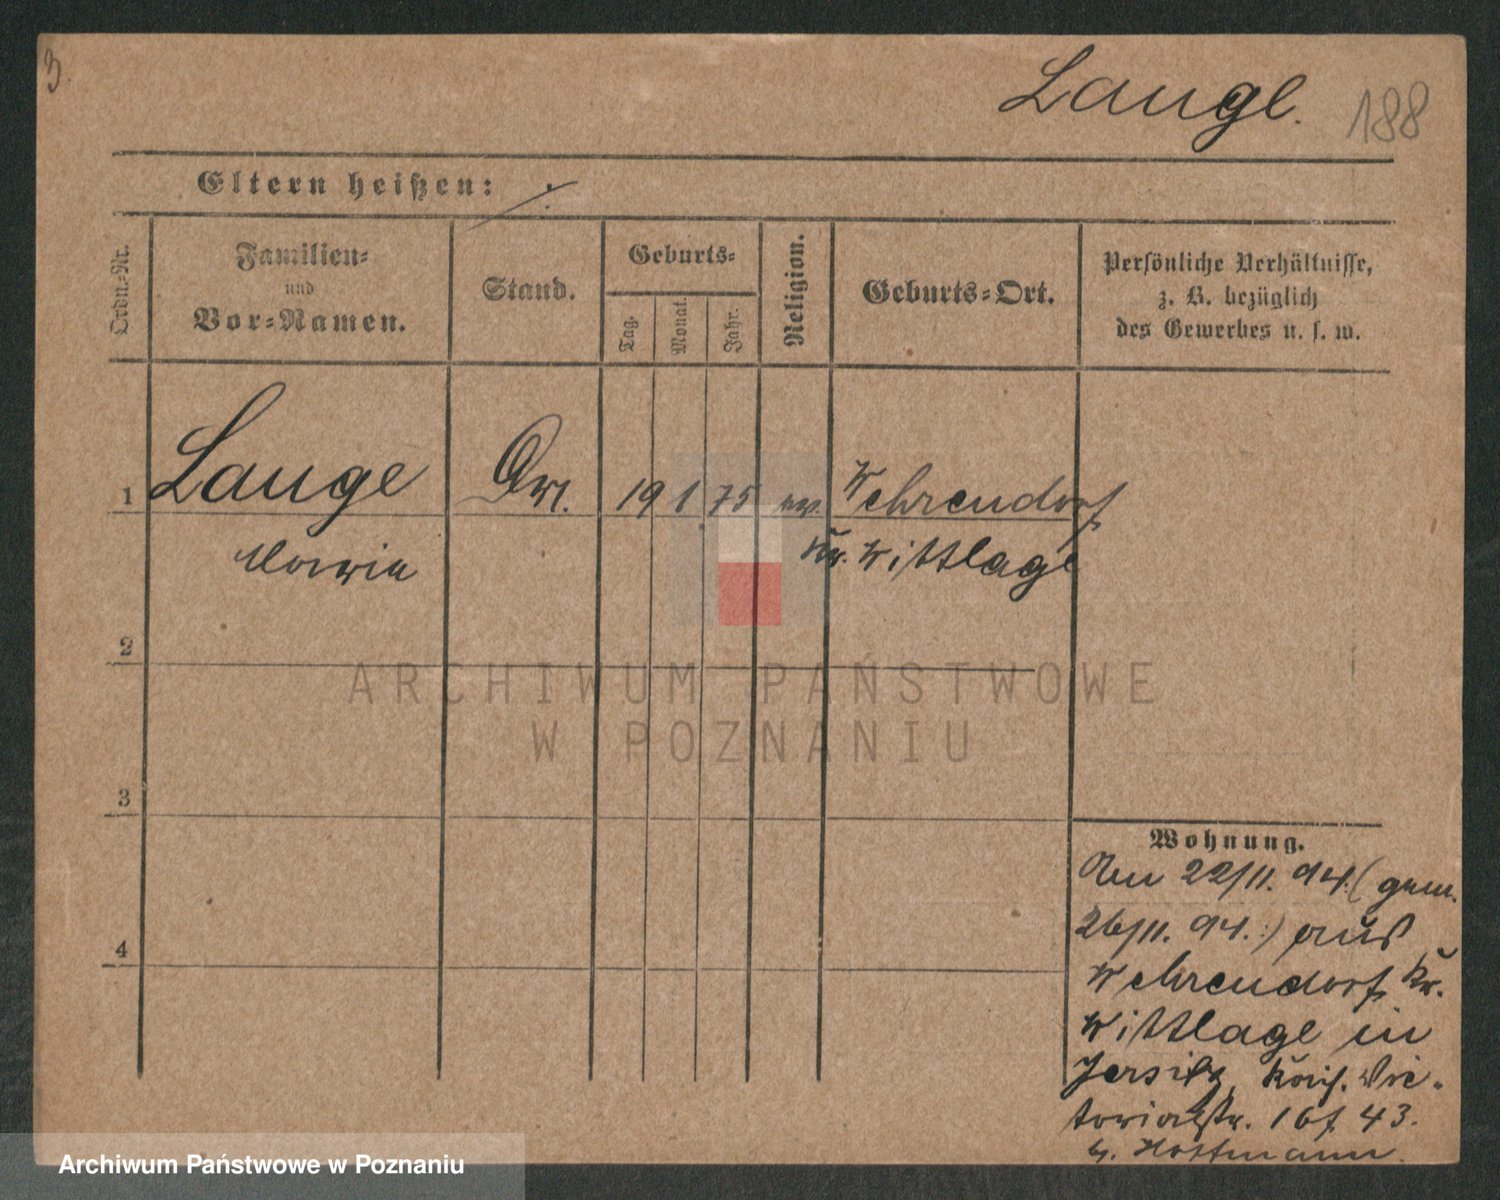 3.
Lange.
188
Eltern heißen: ./.
Ordn.-Nr.
Familien-
und
Vor-Namen.
Stand.
Geburts-
Tag.
Monat.
Jahr.
Religion.
Geburts-Ort.
Persönliche Verhältnisse,
z. B. bezüglich
des Gewerbes u. s. w.
1 Lange 19 1 75 ev. Wehrendorf
Marie Kr. Wittlage
2
3
4
Wohnung.
Am 22/11. 94. (gem.
26/11. 94.) aus
Wehrendorf, Kr.
Wittlage in
Jersitz, Kais. Vic-
toriastr. 43.
b. Hoffmann.
ARCHIWUM PAŃSTWOWE
W POZNANIU
Archiwum Państwowe w Poznaniu